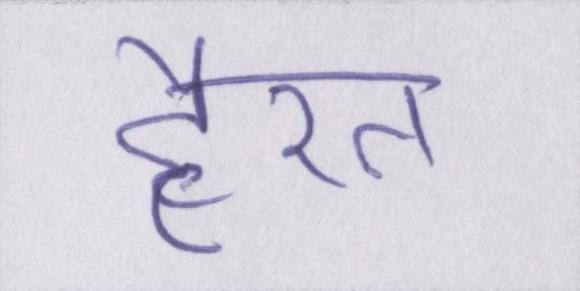 हैरत